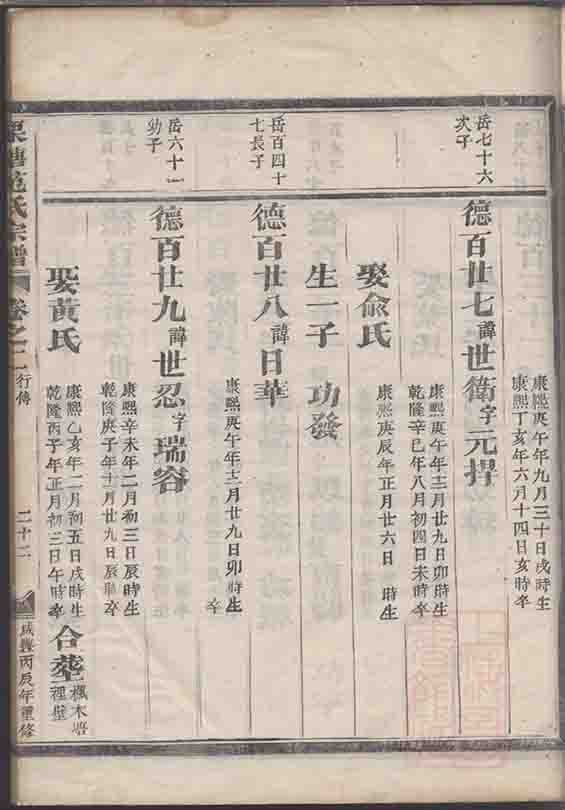 康熙庚午年九月三十日戌時生
康熙丁亥年六月十四日亥時卒
岳七十六
次子
德百廿七諱世衛字元捍
康熙庚午年十二月廿九日卯時生
乾隆辛巳年八月初四日未時卒
娶俞氏
康熙庚辰年正月廿六日 時生
生一子 功發
岳百四十
七長子
德百廿八諱日華
康熙庚午年十二月廿九日卯時生
卒
岳六十一
幼子
德百廿九諱世忍字瑞容
康熙辛未年二月初三日辰時生
乾隆庚子年十一月廿九日辰時卒
娶黃氏
康熙乙亥年二月初五日戌時生
乾隆丙子年正月初三日午時卒
合葬
楓木塔
裡壁
范氏宗譜
卷之二
行傳
二十二
咸豐丙辰年重修